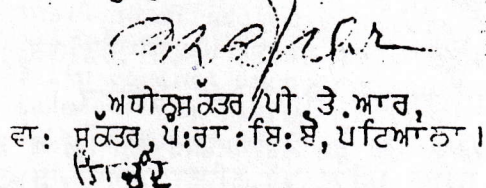 ਅਧੀਨ ਸਕੱਤਰ/ਪੀ ਤੇ ਆਰ,
ਵਾ: ਸਕੱਤਰ, ਪ:ਰਾ:ਬਿ:ਬੋ, ਪਟਿਆਲਾ।